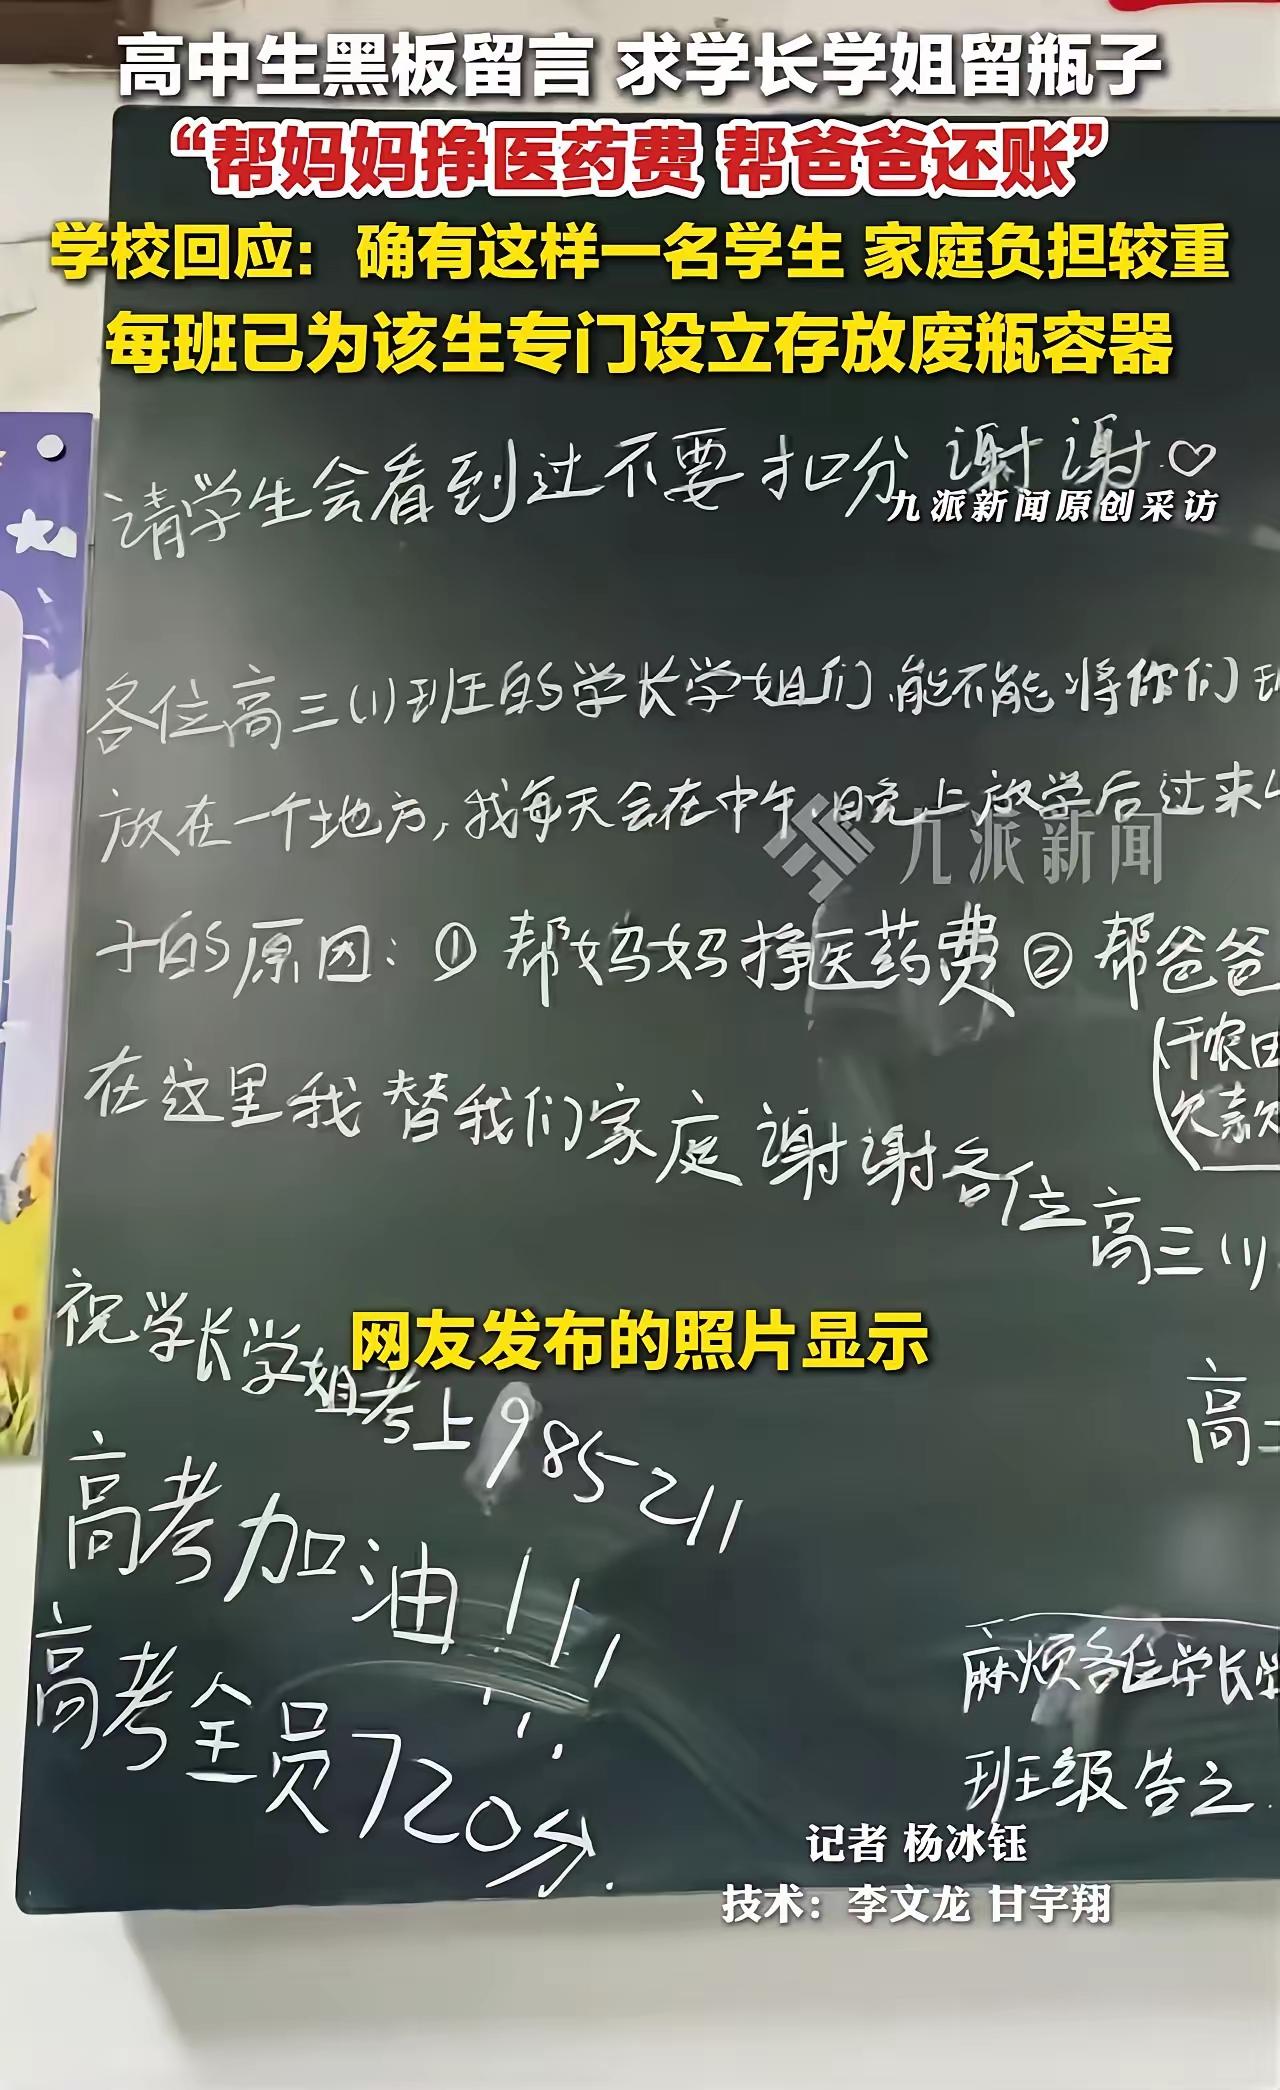 高中生黑板留言 求学长学姐留瓶子
“帮妈妈挣医药费 帮爸爸还账”
学校回应：确有这样一名学生 家庭负担较重
每班已为该生专门设立存放废瓶容器
请学生会看到过不要扣分 谢谢♡
九派新闻原创采访
各位高三(1)班的学长学姐们,能不能将你们班
放在一个地方,我每天会在中午,晚上放学后过来
九派新闻
子的原因:①帮妈妈挣医药费②帮爸爸
(干农田
欠款欠
在这里我替我们家庭谢谢各位高三(1)
祝学长学姐考上985 211
网友发布的照片显示
高考加油!!!
高考全员720分.
麻烦各位学长学
班级告之.
记者 杨冰钰
技术：李文龙 甘宇翔